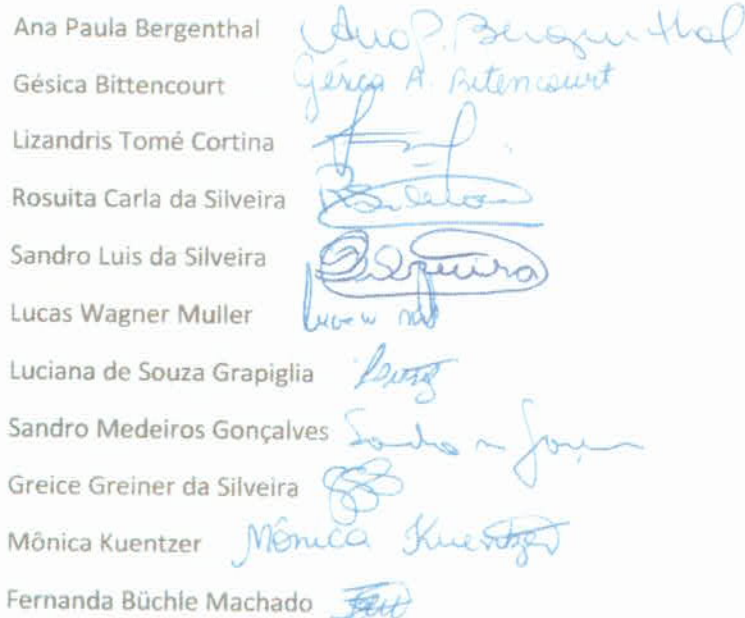 Ana Paula Bergenthal Ana P. Bergenthal
Gésica Bittencourt Gésica A. Bitencourt
Lizandris Tomé Cortina
Rosuita Carla da Silveira
Sandro Luis da Silveira
Lucas Wagner Muller
Luciana de Souza Grapiglia
Sandro Medeiros Gonçalves Sandro m
Greice Greiner da Silveira
Mônica Kuentzer Mônica Kuentzer
Fernanda Büchle Machado